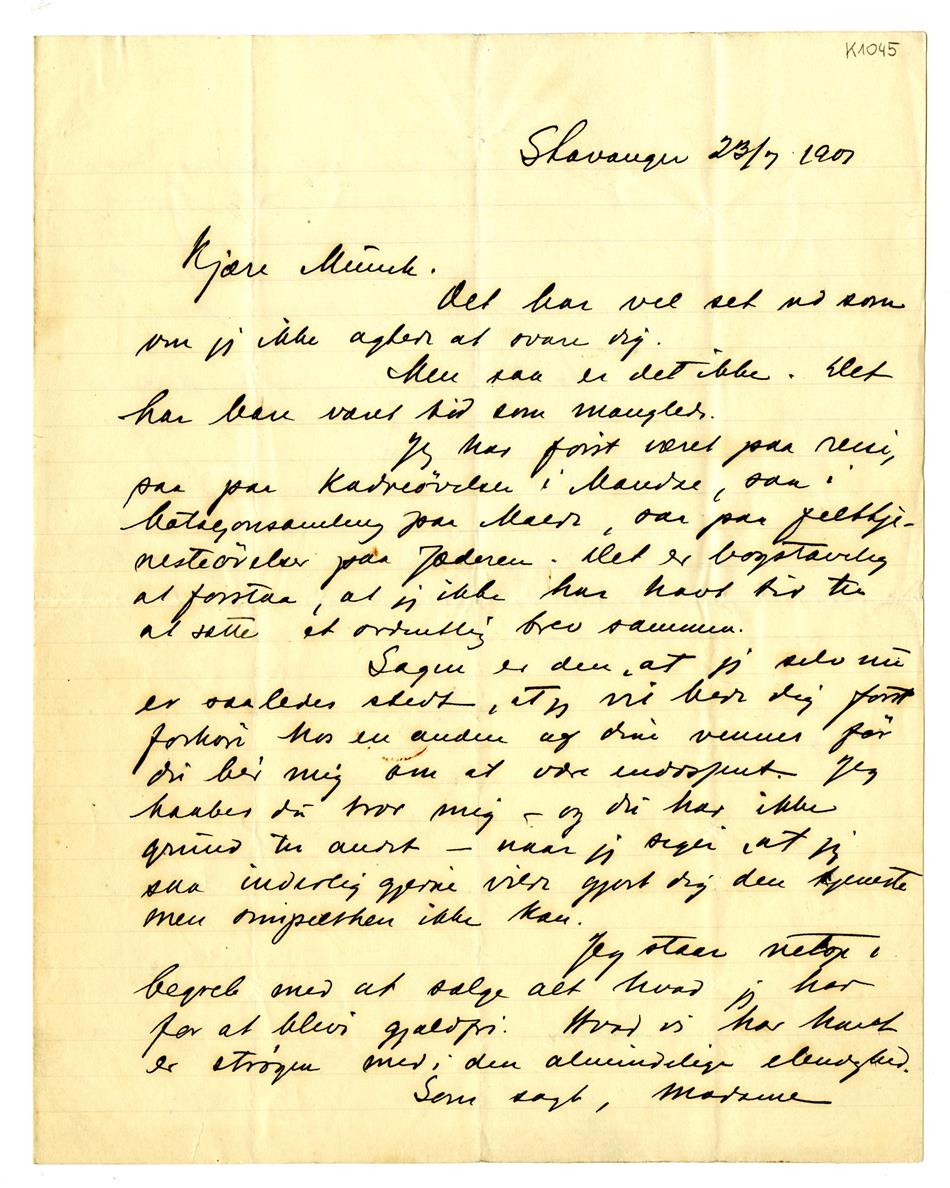 K1045
Stavanger 23/7 1901
Kjære Munch.
Det har vel set ud som
om jeg ikke agtede at svare dig.
Men saa er det ikke. Det
har bare været tid som manglede.
Jeg har først været paa reise,
saa paa Kadreøvelser i Mandal, saa i
bataljonsamling paa Malde, saa paa felttje-
nesteøvelser paa Jæderen. Det er bogstavelig
at forstaa, at jeg ikke har havt tid til
at sætte et ordentlig brev sammen.
Sagen er den, at jeg selv nu
er saaledes stedt, at jeg vil bede dig først
forhøre hos en anden af dine venner før
du ber mig om at være endossent. Jeg
haaber du tror mig – og du har ikke
grund til andet – naar jeg siger, at jeg
saa inderlig gjerne vilde gjort dig den tjeneste
men simpelthen ikke kan.
Jeg staar netop i
begreb med at sælge alt hvad jeg har
for at blive gjældfri. Hvad vi har havt
er strøgen med i den almindelige elendighed.
Som sagt,